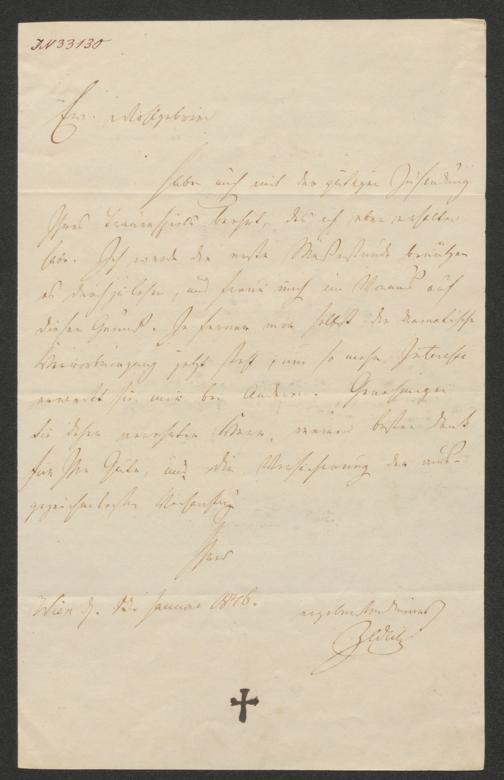 IN 33130
Ew. Wohlgeboren
haben mich mit der gütigen Zusendung
Ihres Trauerspiels beehrt, das ich eben erhalten
habe. Ich werde die erste Mußestunde benützen
es durchzulesen, und freue mich im Voraus auf
diesen Genuß. Je ferner mir selbst die dramatische
jetzt steht, um so mehr Interesse
erweckt sie mir bei Andern. Genehmigen
Sie daher meinen besten Dank
für Ihre Güte, und die Versicherung der aus-
gezeichnetesten Hochachtung
Ihres
Wien d. 12. Januar 1846.
ergebensten Dieners
Zedlitz